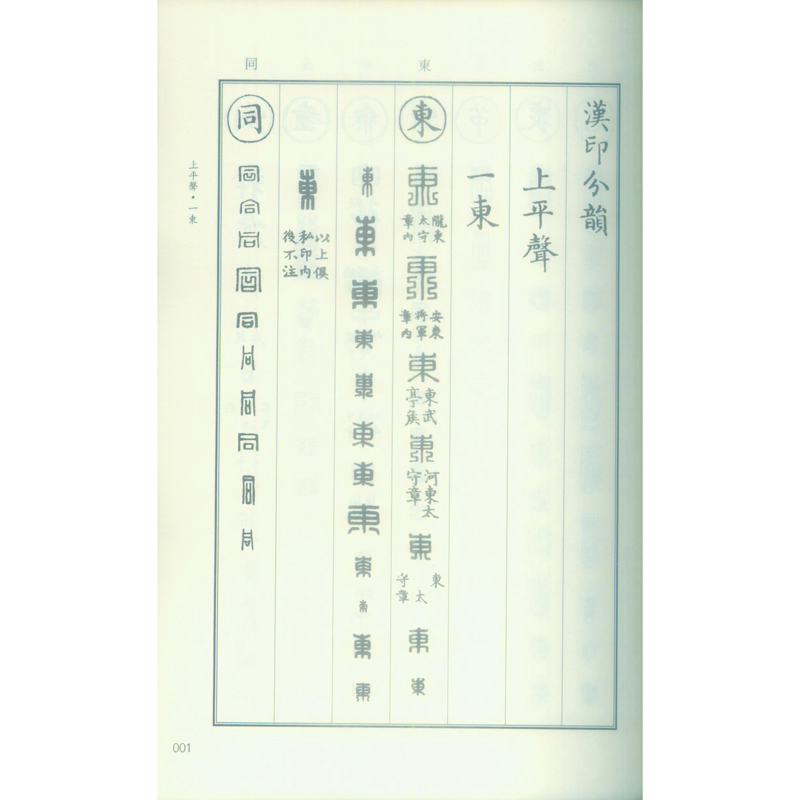 同 東
漢印分韻
上平聲
一東
東
東
隴東太守章內
東
安東將軍章內
東
東武亭矦
東
河東太守章
東
東太守章
東
東
東 東 東 東 東 東 東 東 東 東 東 東
東
以上俱私印內後不注
同
同 同 同 同 同 同 同 同 同 同
上平聲·一東
001